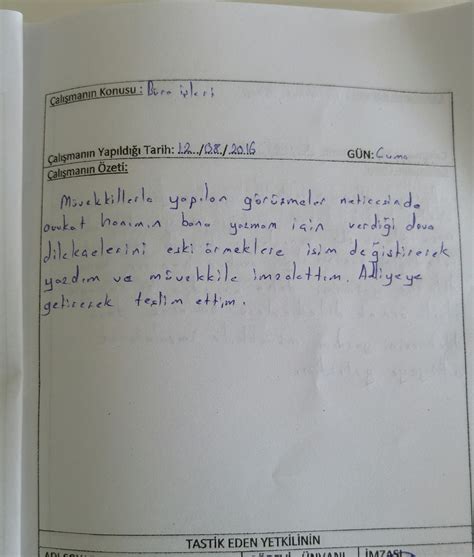 Çalışmanın Konusu : Büro işleri
Çalışmanın Yapıldığı Tarih: 12../08./.2016
GÜN: Cuma
Çalışmanın Özeti:
Müvekkillerle yapılan görüşmeler neticesinde
avukat hanımın bana yazmam için verdiği dava
dilekçelerini eski örneklere isim değiştirerek
yazdım ve müvekkile imzalattım. Adliyeye
getirerek teslim ettim.
TASTİK EDEN YETKİLİNİN
ÜNVANI
İMZASI